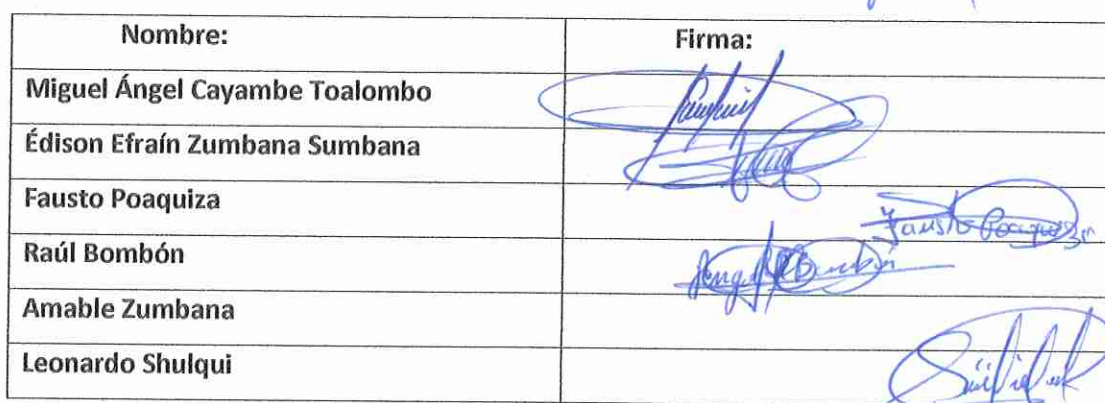 Nombre: Firma:
Miguel Ángel Cayambe Toalombo
Édison Efraín Zumbana Sumbana
Fausto Poaquiza
Fausto Poaquiza
Raúl Bombón
Amable Zumbana
Leonardo Shulqui